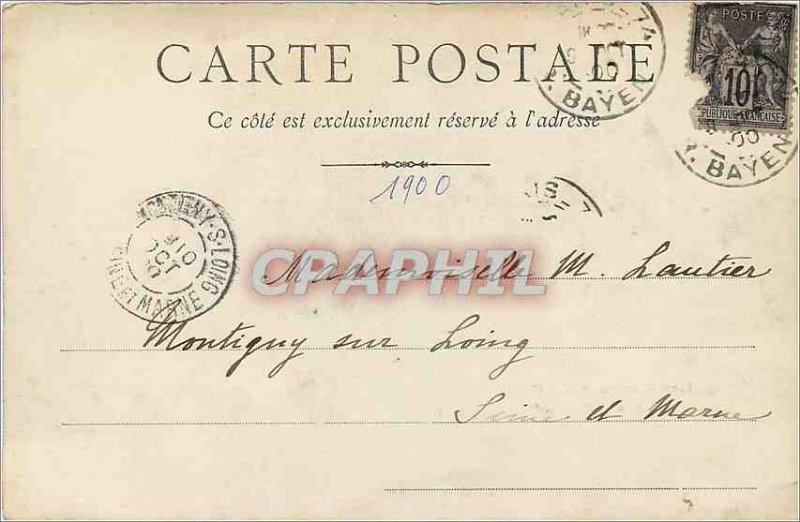 CARTE POSTALE
Ce côté est exclusivement réservé à l'adresse
1900
POSTES
10
REPUBLIQUE FRANÇAISE
BAYEN
BAYEN
MONTIGNY-S-LOING
OCT
SEINE ET MARNE
CRAPHIL
Mademoiselle M. Lautier
Montigny sur Loing
Seine et Marne